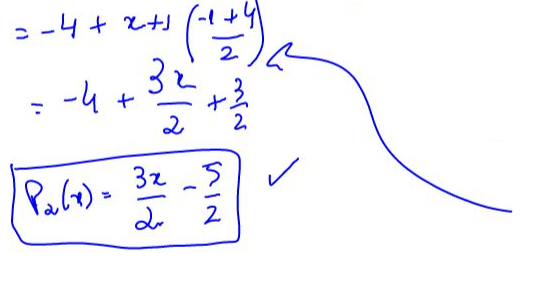 = -4 + x+1 (-1+4/2)
= -4 + 3x/2 + 3/2
P₂(x) = 3x/2 - 5/2 ✓